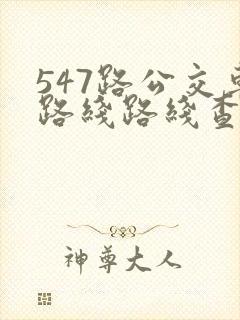 547路公交车
路线路线查
神尊大人